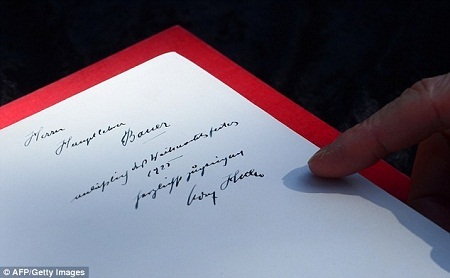 Herrn
Hauptlehrer
Bauer
anläßlich des Weihnachtsfestes
1925
herzlichst zugeeignet
Adolf Hitler
© AFP/Getty Images